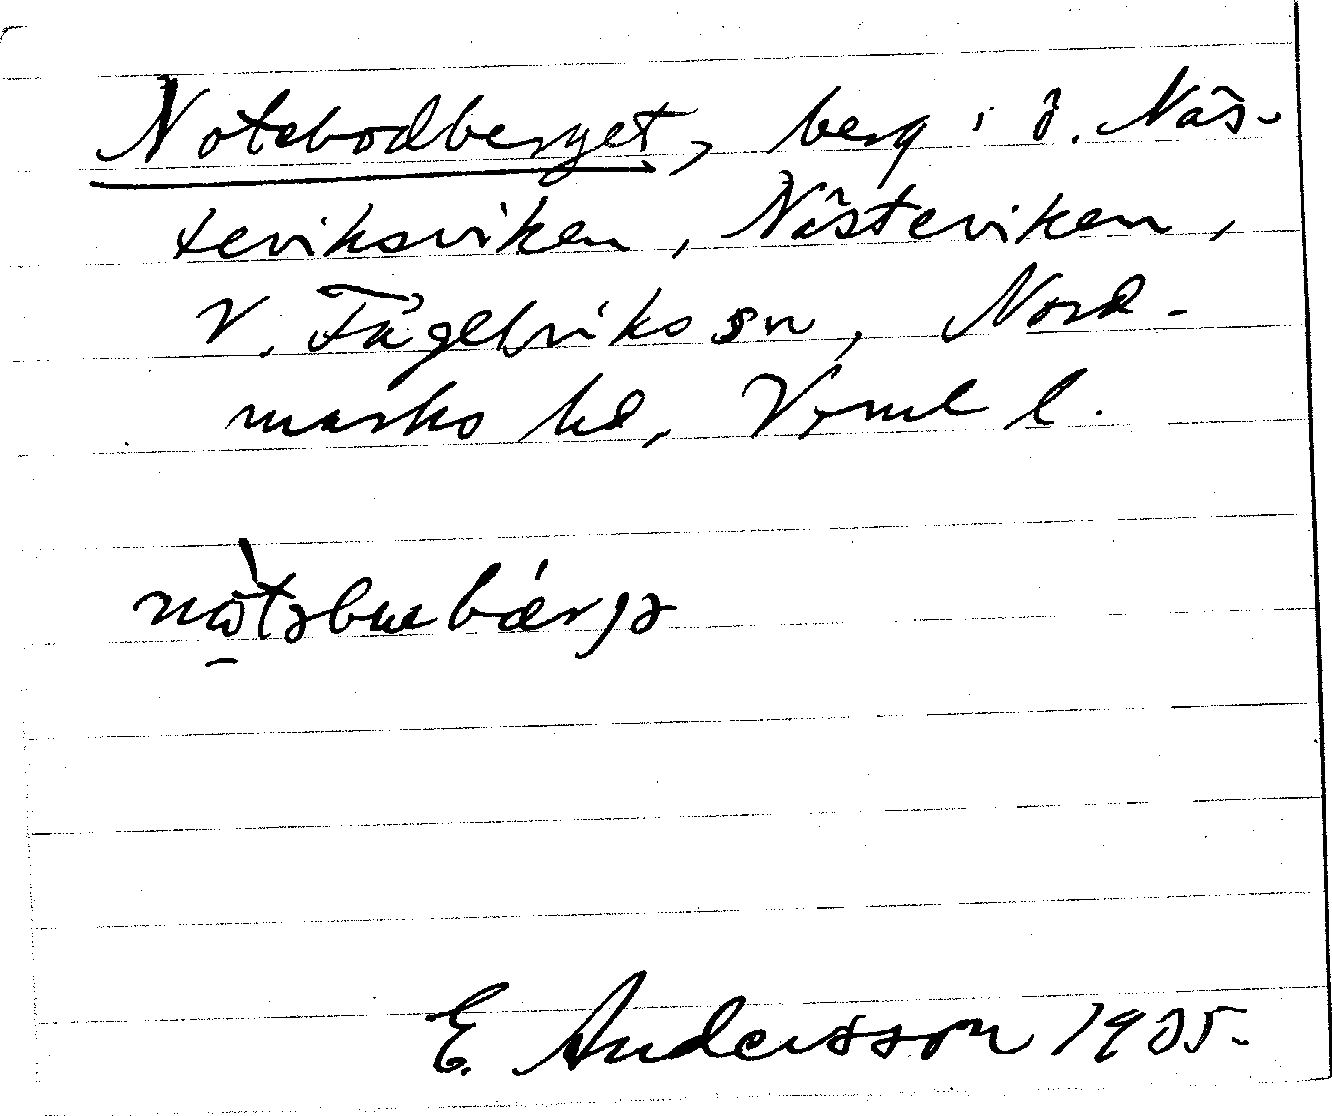 Notebodberget, berg i ö. Näs-
teviksviken, Nästeviken,
V. Fågelviks sn, Nord-
marks hd, Vrml l.
nò̱təbuebǽrjə
E. Andersson 1935.